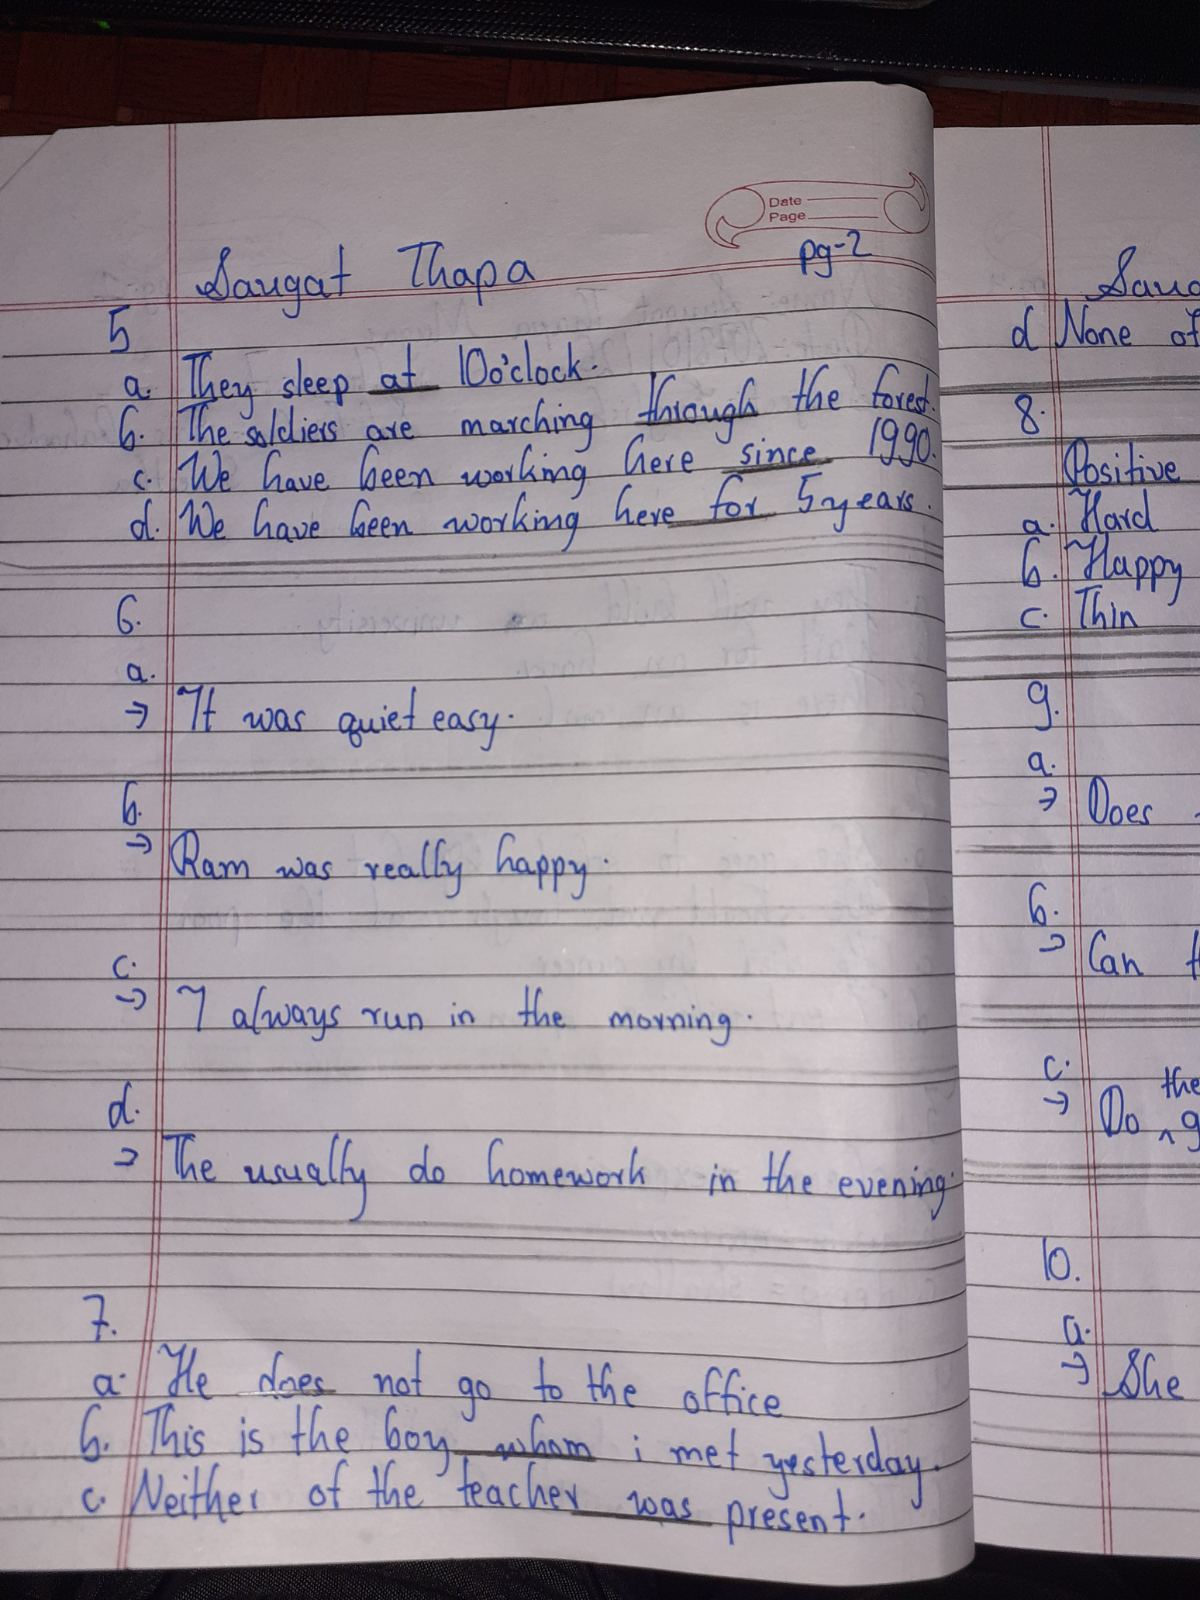 Date
Page
pg-2
Saugat Thapa
5
a. They sleep at 10o'clock.
b. The soldiers are marching through the forest.
c. We have been working here since 1990.
d. We have been working here for 5years.
6.
a.
→ It was quiet easy.
b.
→ Ram was really happy.
c.
→ I always run in the morning.
d.
→ The usually do homework in the evening.
7.
a. He does not go to the office
b. This is the boy whom i met yesterday.
c. Neither of the teacher was present.
d None of
8.
Positive
a. Hard
b. Happy
c. Thin
9.
a.
→ Does
b.
→ Can
c.
→ Do the
10.
a.
→ She